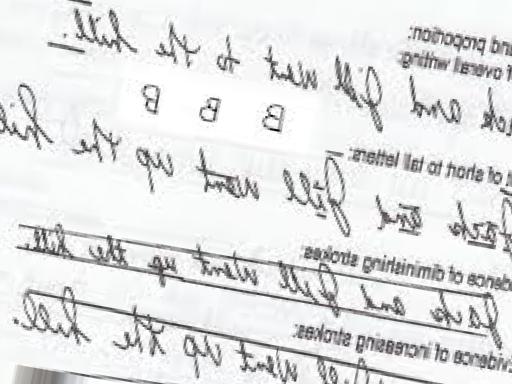 nd proportion:
of overall writing
ck and Jill went to the hill.
B B B
of short to tall letters:
Jack and Jill went up the hill
dence of diminishing strokes:
Jack and Jill went up the hill.
vidence of increasing strokes:
Jill went up the hill.